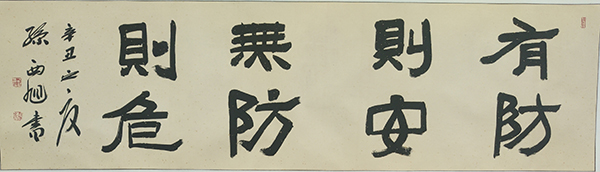 有防
則安
無防
則危
辛丑之夏
孫西旭書